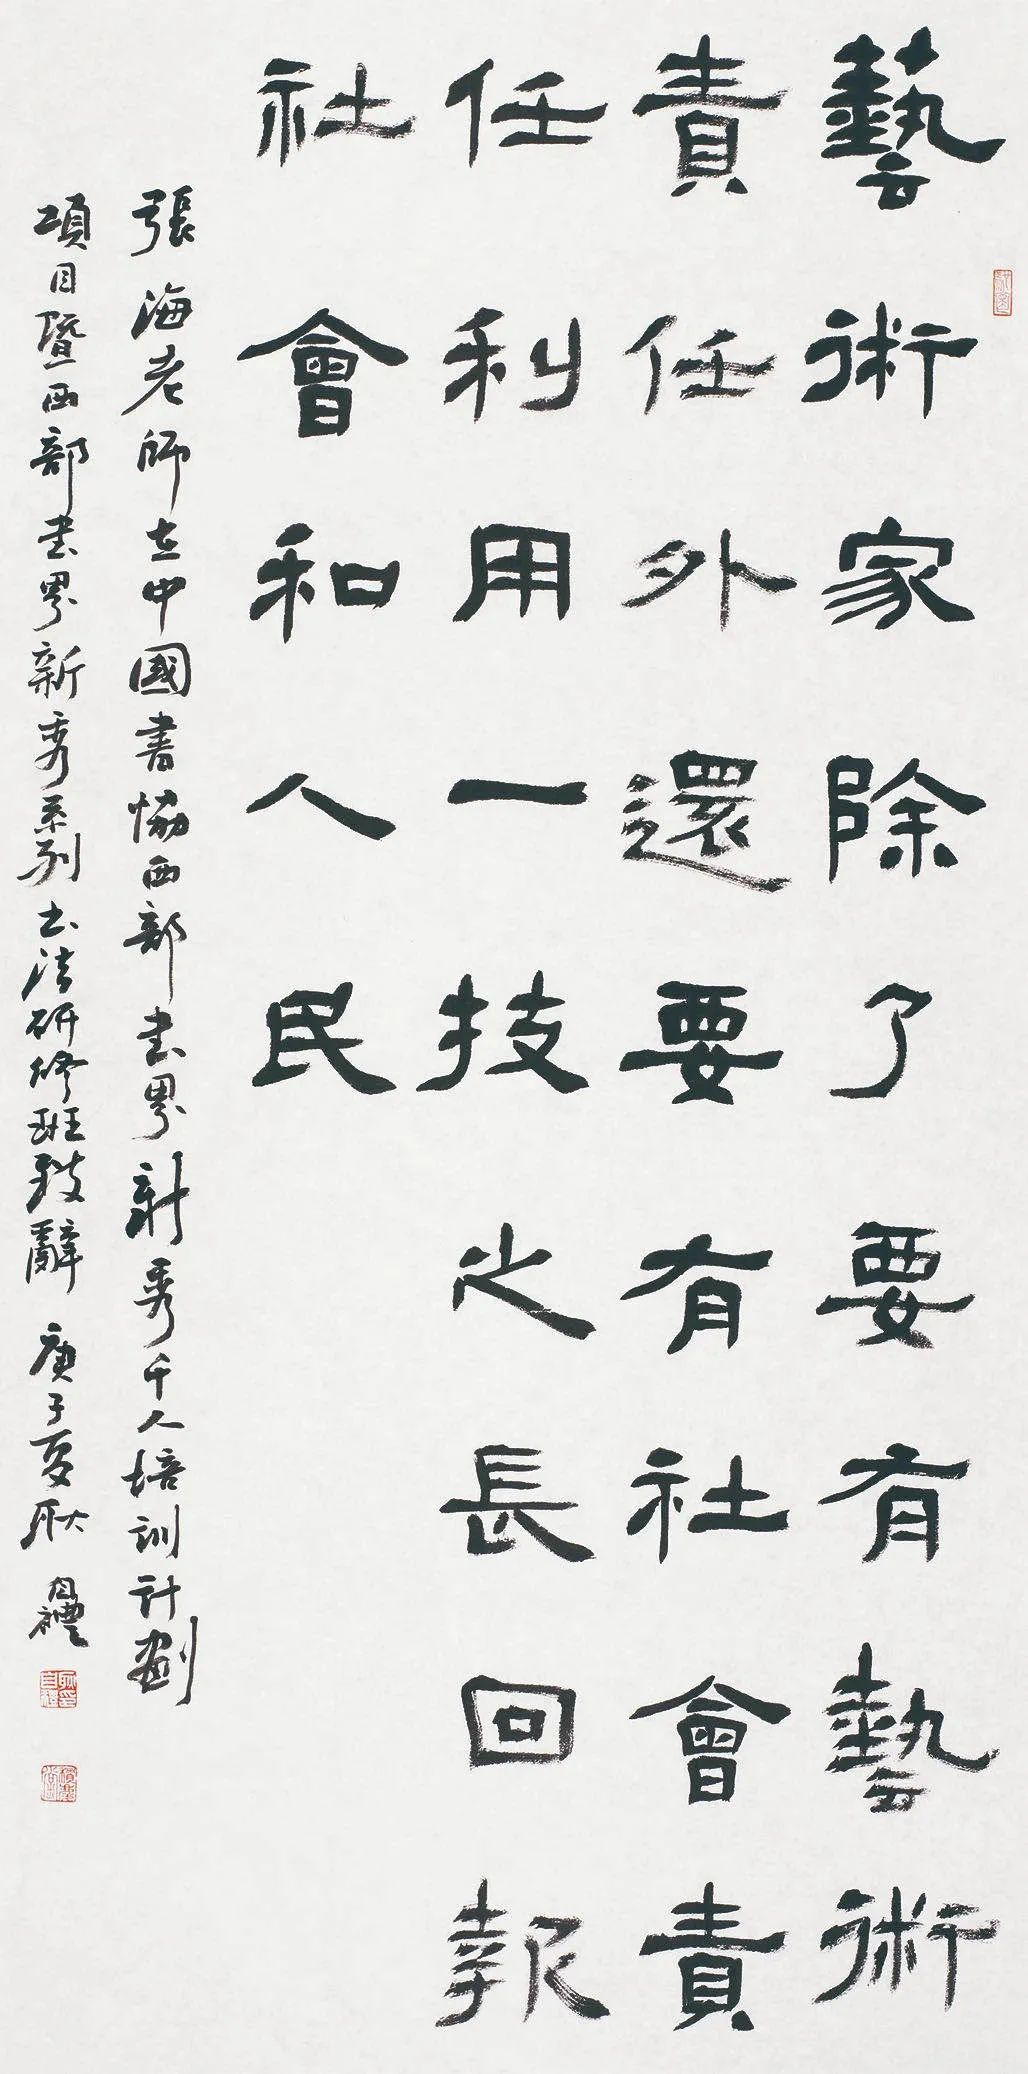 藝術家除了要有藝術
責任外還要有社會責
任利用一技之長回報
社會和人民
張海老師在中國書協西部書界新秀千人培訓計劃
項目暨西部書界新秀系列書法研修班致辭 庚子夏耿自禮